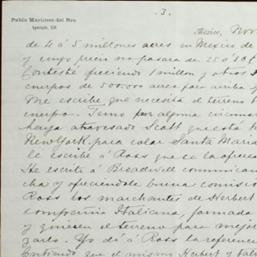 Pablo Martinez del Rio
3.
Mexico, Nov.
de 4 á 5 millones acres en Mexico de
y cuyo precio no pasara de 25 á 50 c
Contesté ofreciendo 1 millon y otros
cuerpos de 500.000 acres para arriba y
Me escribe que necesita el terreno
cuerpo. Temo por alguna circuns
haya atravesado Scott que esta
New York para colar Santa Maria
le escribe á Ross que se la ofrecia
He escrito á Broadwell communican
cha y ofreciendole buena comisio
Ross los marchantes de Herbert
compañia Italiana formada
y quieren el terreno para mejor
parts. Yo dé á Ross la referencia
que el mismo Herbert y